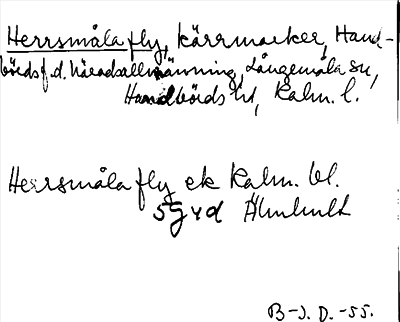 Herrsmåla fly, kärrmarker, Hand-
börds f.d. häradsallmänning, Långemåla sn,
Handbörds hd, Kalm. l.
Herrsmåla fly ek Kalm. bl.
5G yd Älmhult
B-J. D. -55.